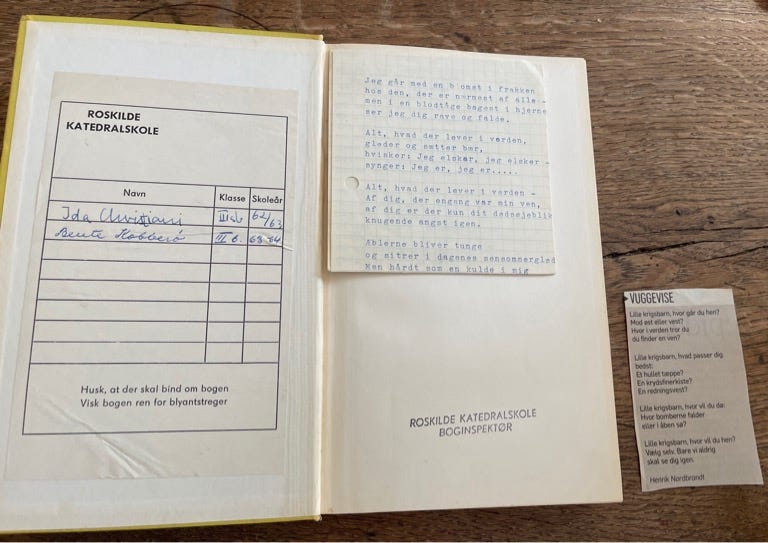 ROSKILDE
KATEDRALSKOLE
Navn Klasse Skoleår
Ida 62/63
Bente 63-64
Husk, at der skal bind om bogen
Visk bogen ren for blyantstreger
Jeg går med en blomst i frakken
hos den, der er nærmest af alle -
men i en blodtåge bagest i hjerne
ser jeg dig rave og falde.
Alt, hvad der lever i verden,
gløder og sætter bær,
hvisker: Jeg elsker, jeg elsker -
synger: Jeg er, jeg er.....
Alt, hvad der lever i verden -
Af dig, der engang var min ven,
af dig er der kun dit dødsøjeblik
knugende angst igen.
Æblerne bliver tunge
og sitrer i dagenes sensommerglød
Men hårdt som en kulde i mig
ROSKILDE KATEDRALSKOLE
BOGINSPEKTØR
VUGGEVISE
Lille krigsbarn, hvor går du hen?
Mod øst eller vest?
Hvor i verden tror du
du finder en ven?
Lille krigsbarn, hvad passer dig
bedst:
Et hullet tæppe?
En krydsfinerkiste?
En redningsvest?
Lille krigsbarn, hvor vil du dø:
Hvor bomberne falder
eller i åben sø?
Lille krigsbarn, hvor vil du hen?
Vælg selv. Bare vi aldrig
skal se dig igen.
Henrik Nordbrandt